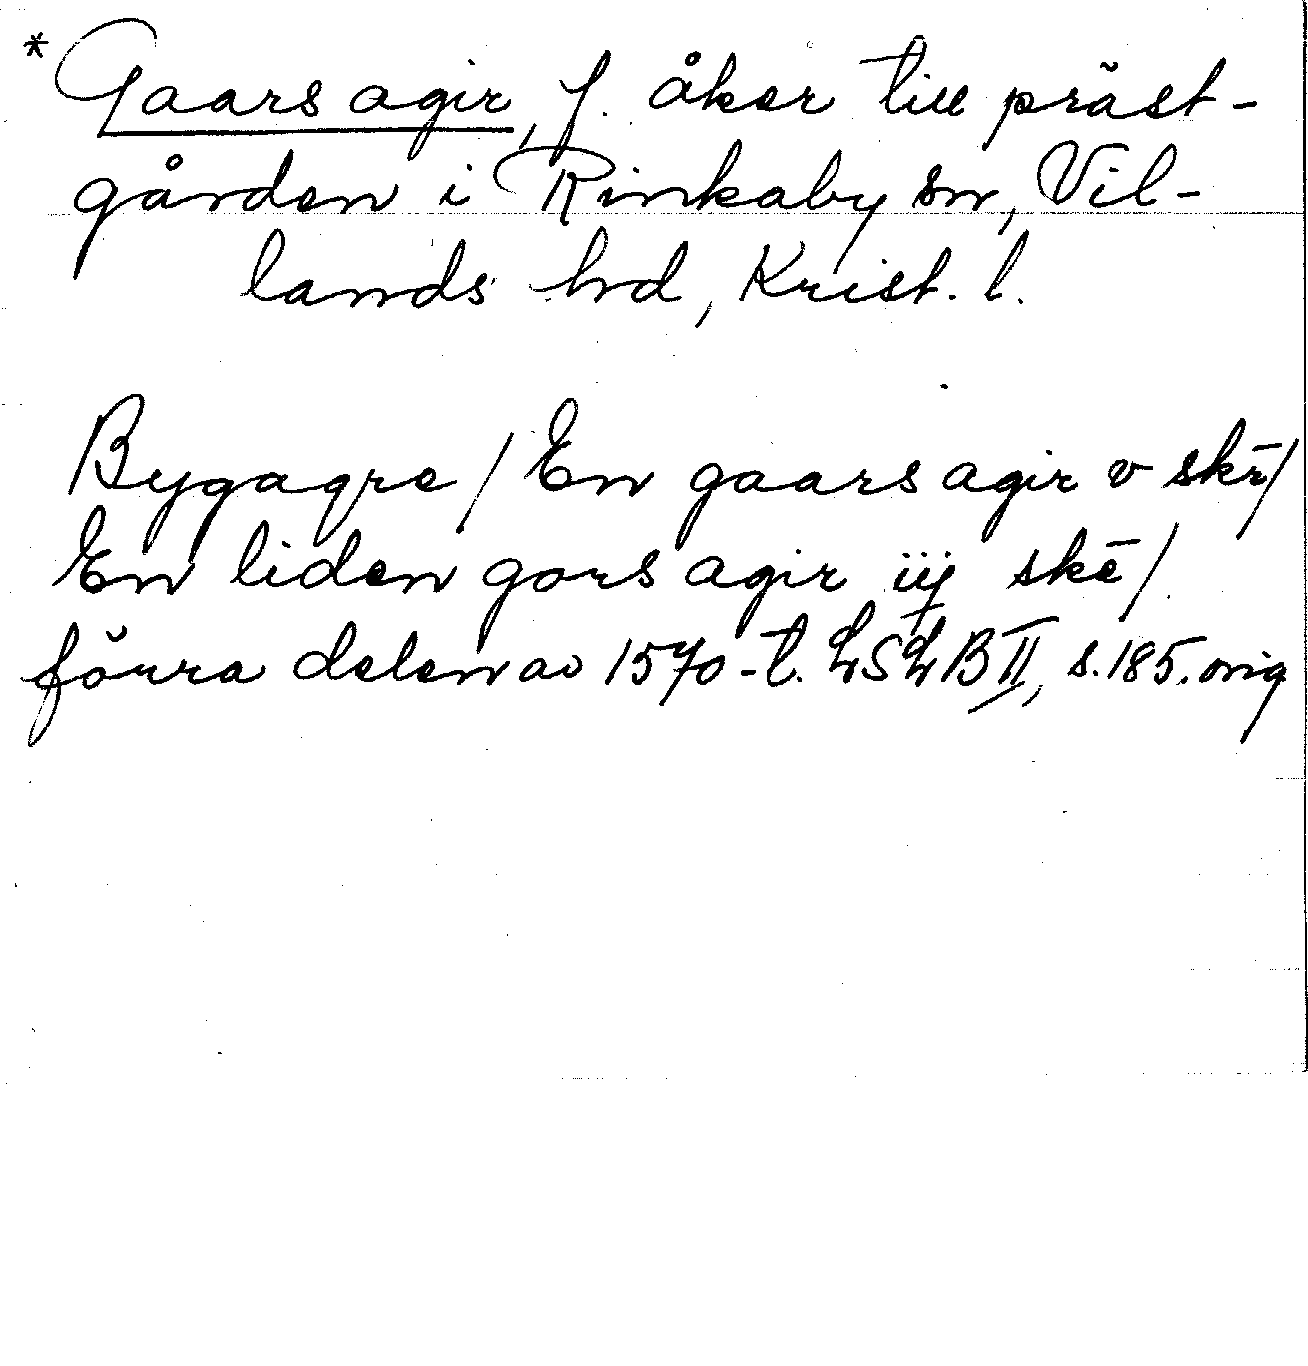 * Gaars agir, f. åker till präst-
gården i Rinkaby sn, Vil-
lands hd, Krist. l.
Bygagre / En gaars agir v skē/
En liden gors agir iij skē/
förra delen av 1570-t. LSLB II, s. 185. orig